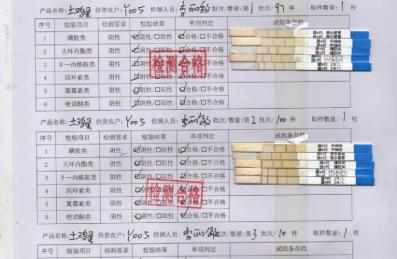 产品名称:土鸡蛋 供货农户:Y005 检测人员: 批次/数量:第1批次/97件 取样数量:1枚
序号 检验项目 检测要求 检验结果 单项判定 试纸条存档
1 磺胺类 阴性 ☑阴性/□阳性 ☑合格/□不合格
2 大环内酯类 阴性 ☑阴性/□阳性 ☑合格/□不合格
3 β-内酰胺类 阴性 ☑阴性/□阳性 ☑合格/□不合格
4 四环素类 阴性 ☑阴性/□阳性 ☑合格/□不合格
5 氟霉素类 阴性 ☑阴性/□阳性 ☑合格/□不合格
6 喹诺酮类 阴性 ☑阴性/□阳性 ☑合格/□不合格
检测合格
产品名称:土鸡蛋 供货农户:Y005 检测人员: 批次/数量:第2批次/100件 取样数量:1枚
序号 检验项目 检测要求 检验结果 单项判定 试纸条存档
1 磺胺类 阴性 ☑阴性/□阳性 ☑合格/□不合格
2 大环内酯类 阴性 ☑阴性/□阳性 ☑合格/□不合格
3 β-内酰胺类 阴性 ☑阴性/□阳性 ☑合格/□不合格
4 四环素类 阴性 ☑阴性/□阳性 ☑合格/□不合格
5 氟霉素类 阴性 ☑阴性/□阳性 ☑合格/□不合格
6 喹诺酮类 阴性 ☑阴性/□阳性 ☑合格/□不合格
检测合格
产品名称:土鸡蛋 供货农户:Y005 检测人员: 批次/数量:第3批次/10件 取样数量:1枚
序号 检验项目 检测要求 检验结果 单项判定 试纸条存档